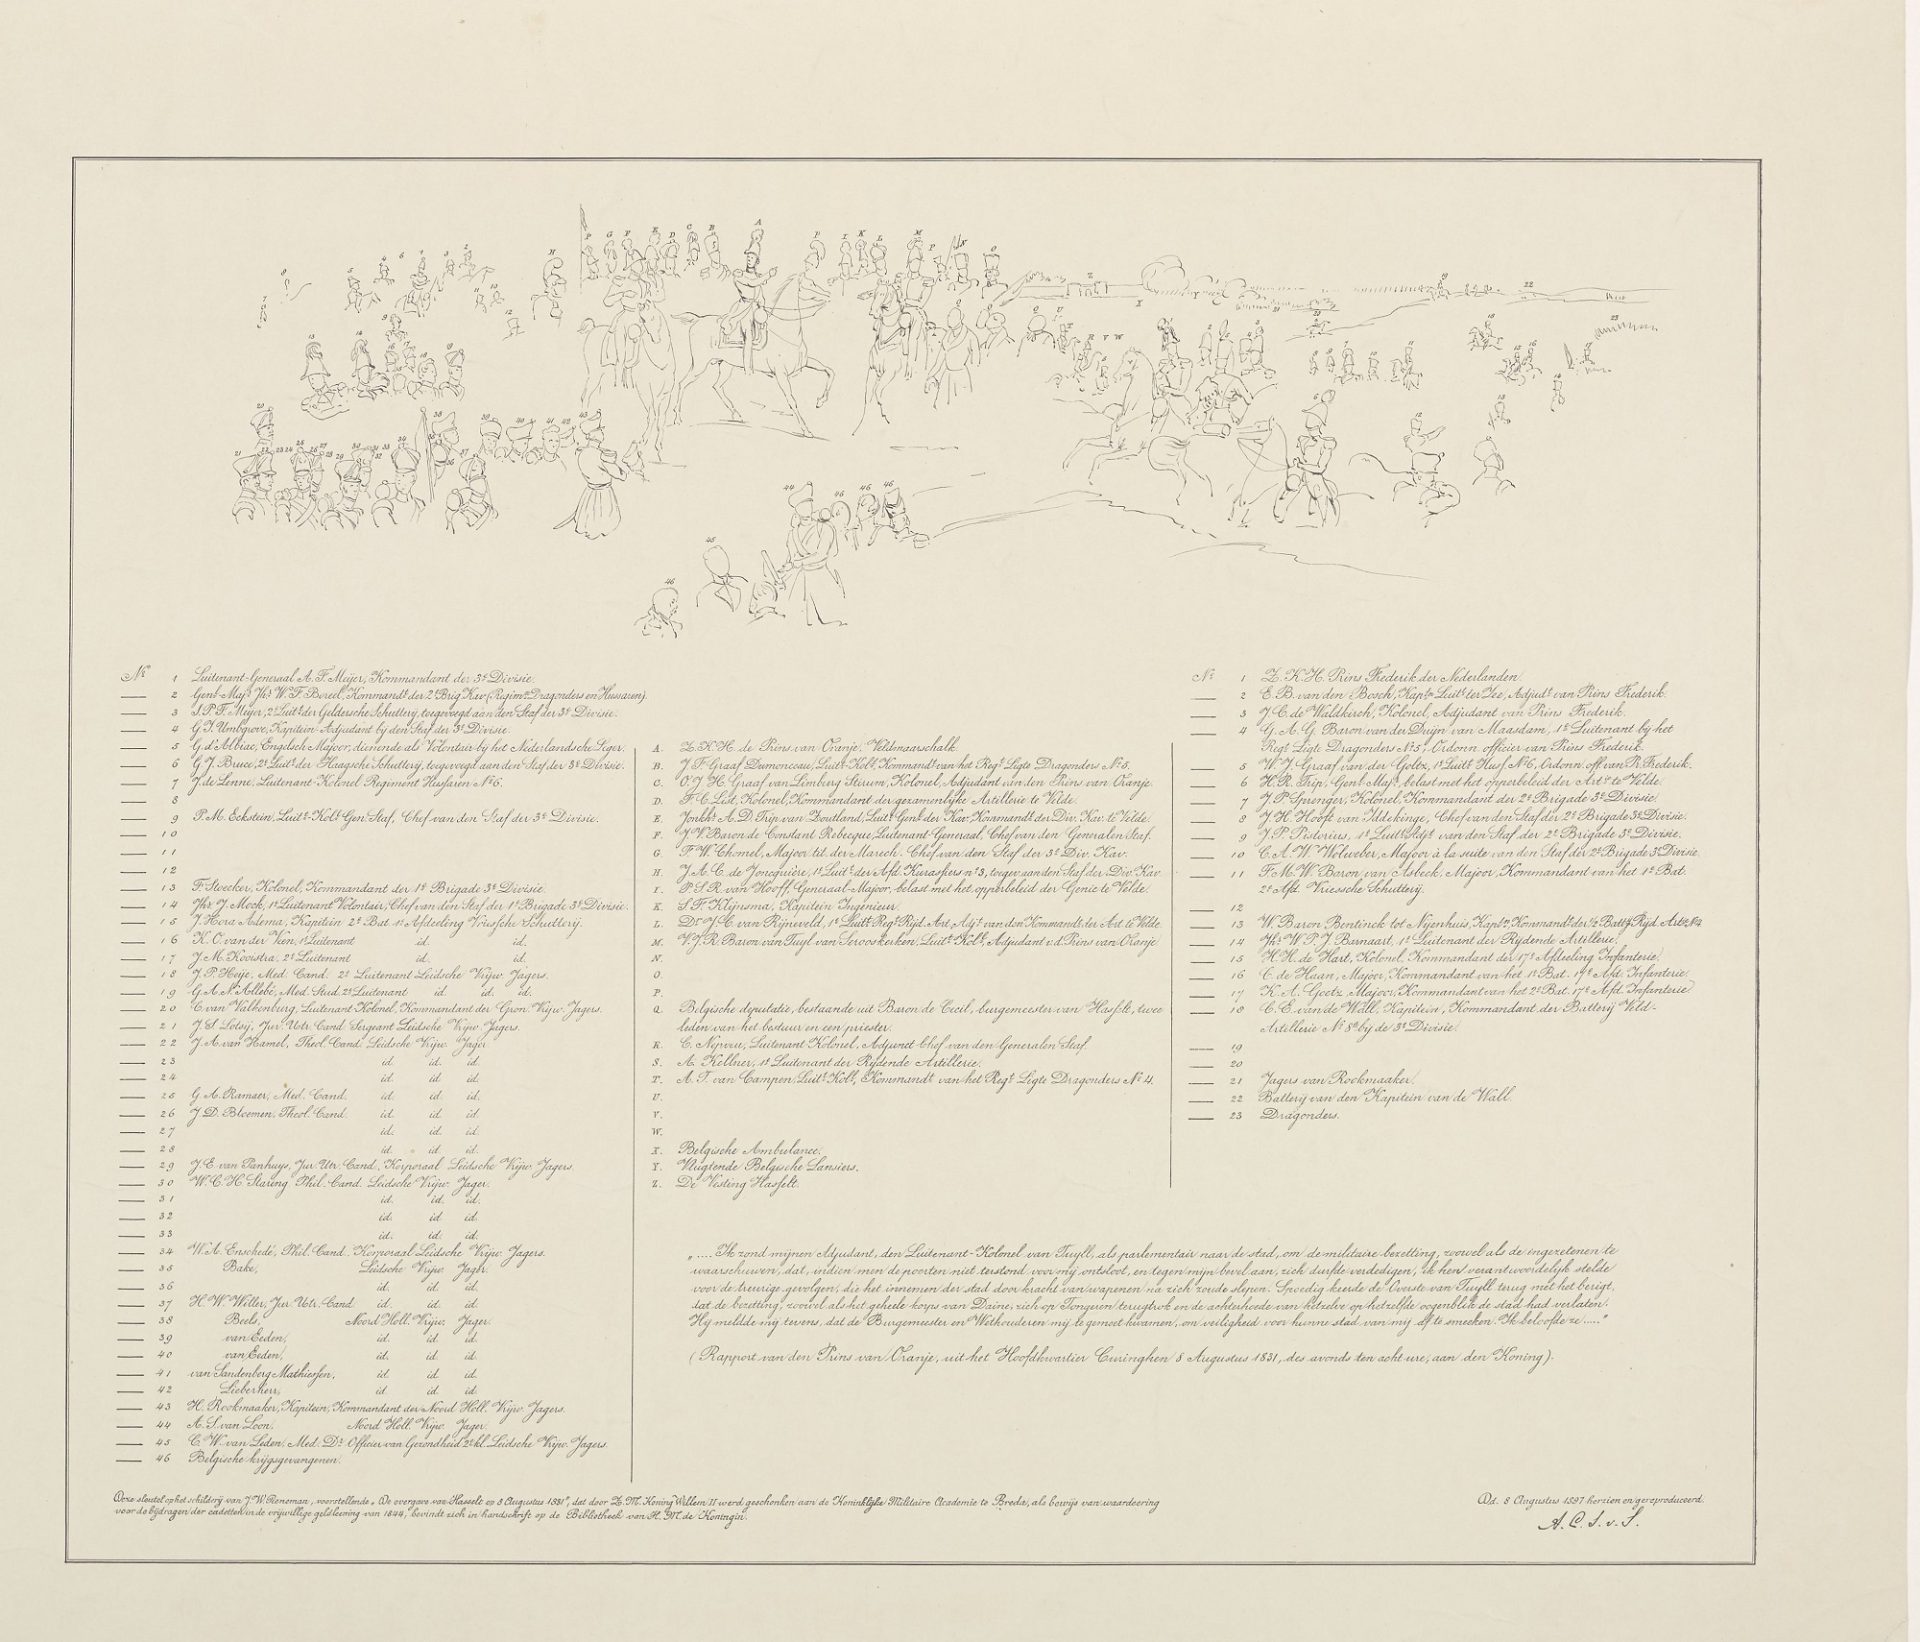 No 1 Luitenant-Generaal A. F. Meijer, Kommandant der 3e Divisie.
2 Genl-Majr Jhr W. F. Boreel, Kommandt der 2e Brig Kav. (Regimn Dragonders en Husaren).
3 J. P. F. Meijer, 2e Luitt der Geldersche Schutterij, toegevoegd aan den Staf der 3e Divisie.
4 G. J. Umbgrove, Kapitein-Adjudant bij den Staf der 3e Divisie.
5 G. d'Albiac, Engelsch Majoor, dienende als Volontair bij het Nederlandsche Leger.
6 G. J. Bruce, 2e Luitt der Haagsche Schutterij, toegevoegd aan den Staf der 3e Divisie.
7 J. de Lenne, Luitenant-Kolonel Regiment Husaren No 6.
8
9 P. M. Eckstein, Luitt-Koll Gen. Staf, Chef van den Staf der 3e Divisie.
10
11
12
13 F. Stoecker, Kolonel, Kommandant der 1e Brigade 3e Divisie.
14 Jhr J. Mock, 1e Luitenant Volontair, Chef van den Staf der 1e Brigade 3e Divisie.
15 J. Hora Adema, Kapitein 2e Bat. 1e Afdeeling Vriesche Schutterij.
16 K. O. van der Veen, 1e Luitenant id. id.
17 J. M. Kooistra, 2e Luitenant id. id.
18 J. P. Heije, Med. Cand. 2e Luitenant Leidsche Vrijw. Jagers.
19 G. A. N. Allebé, Med. Stud. 2e Luitenant id. id. id.
20 C. van Valkenburg, Luitenant-Kolonel, Kommandant der Gron. Vrijw. Jagers.
21 J. S. Lotsij, Jur. Utr. Cand. Sergeant Leidsche Vrijw. Jagers.
22 J. A. van Hamel, Theol. Cand. Leidsche Vrijw. Jager.
23 id. id. id.
24 id. id. id.
25 G. A. Ramaer, Med. Cand. id. id. id.
26 J. D. Bloemen, Theol. Cand. id. id. id.
27 id. id. id.
28 id. id. id.
29 J. E. van Panhuys, Jur. Utr. Cand., Korporaal Leidsche Vrijw. Jagers.
30 W. C. H. Staring Phil. Cand. Leidsche Vrijw. Jager.
31 id. id. id.
32 id. id. id.
33 id. id. id.
34 W. A. Enschedé, Phil. Cand. Korporaal Leidsche Vrijw. Jagers.
35 Bake, Leidsche Vrijw. Jager.
36 id. id. id.
37 H. W. Willer, Jur. Utr. Cand. id. id. id.
38 Beels, Noord Holl. Vrijw. Jager.
39 van Eeden, id. id. id.
40 van Eeden, id. id. id.
41 van Sandenberg Mathiessen, id. id. id.
42 Lieberherr, id. id. id.
43 H. Rookmaaker, Kapitein, Kommandant der Noord Holl. Vrijw. Jagers.
44 A. S. van Loon, Noord Holl. Vrijw. Jager.
45 C. W. van Leden, Med. Dr Officier van Gezondheid 2e kl. Leidsche Vrijw. Jagers.
46 Belgische krijgsgevangenen.
A. Z. K. H. de Prins van Oranje, Veldmaarschalk.
B. J. F. Graaf Dumonceau, Luitt-Koll, Kommandt van het Regt Ligte Dragonders No 5.
C. O. J. H. Graaf van Limburg Stirum, Kolonel, Adjudant van den Prins van Oranje.
D. F. C. List, Kolonel, Kommandant der gezamenlijke Artillerie te Velde.
E. Jonkhr A. D. Trip van Zoutland, Luitt-Genl der Kav. Kommandt der Div. Kav. te Velde.
F. J. V. Baron de Constant Rebecque, Luitenant-Generaal, Chef van den Generalen Staf.
G. F. W. Chomel, Majoor tit. der Marech. Chef van den Staf der 3e Div. Kav.
H. J. A. C. de Joncquière, 1e Luitt der Afd. Kurassiers No 3, toegev. aan den Staf der Div. Kav.
I. P. S. R. van Hooff, Generaal-Majoor, belast met het opperbeleid der Genie te Velde.
K. S. F. Kleijnsma, Kapitein Ingenieur.
L. Dr J. C. van Rijneveld, 1e Luitt Regt Rijd. Art. Adjt van den Kommandt der Art. te Velde.
M. V. J. R. Baron van Tuyl van Serooskerken, Luitt Koll, Adjudant v. d. Prins van Oranje.
N.
O.
P.
Q. Belgische deputatie, bestaande uit Baron de Cecil, burgemeester van Hasselt, twee
leden van het bestuur en een priester.
R. C. Nepveu, Luitenant Kolonel, Adjunct Chef van den Generalen Staf.
S. A. Kellner, 1e Luitenant der Rijdende Artillerie.
T. A. T. van Campen, Luitt-Koll, Kommandt van het Regt Ligte Dragonders No 4.
U.
V.
W.
X. Belgische Ambulance.
Y. Vlugtende Belgische Lansiers.
Z. De Vesting Hasselt.
No 1 Z. K. H. Prins Frederik der Nederlanden.
2 E. B. van den Bosch, Kapn Luitt ter Zee, Adjudt van Prins Frederik.
3 J. C. de Waldkirch, Kolonel, Adjudant van Prins Frederik.
4 G. A. G. Baron van der Duijn van Maasdam, 1e Luitenant bij het
Regt Ligte Dragonders No 5, Ordonn. officier van Prins Frederik.
5 W. J. Graaf van der Goltz, 1e Luitt Husf No 6, Ordonn. off. van P. Frederik.
6 H. R. Trip, Genl-Majr, belast met het opperbeleid der Arte te Velde.
7 J. P. Sprenger, Kolonel, Kommandant der 2e Brigade 3e Divisie.
8 J. H. Hooft van Iddekinge, Chef van den Staf der 2e Brigade 3e Divisie.
9 J. P. Pistorius, 1e Luitt Adjt van den Staf der 2e Brigade 3e Divisie.
10 C. A. W. Wolweber, Majoor à la suite van den Staf der 2e Brigade 3e Divisie.
11 F. M. W. Baron van Asbeck, Majoor, Kommandant van het 1e Bat.
2e Afd. Vriessche Schutterij.
12
13 W. Baron Bentinck tot Nyenhuis, Kapn, Kommandt der 1/2 Battij Rijd. Arte No 4
14 Jhr W. P. J. Barnaart, 1e Luitenant der Rijdende Artillerie.
15 H. H. de Hart, Kolonel, Kommandant der 17e Afdeeling Infanterie.
16 C. de Haan, Majoor, Kommandant van het 1e Bat. 17e Afd. Infanterie.
17 K. A. Goetz, Majoor, Kommandant van het 2e Bat. 17e Afd. Infanterie.
18 C. E. van de Wall, Kapitein, Kommandant der Batterij Veld-
Artillerie No 8a bij de 3e Divisie.
19
20
21 Jagers van Rookmaaker.
22 Batterij van den Kapitein van de Wall.
23 Dragonders.
„.... Ik zond mijnen Adjudant, den Luitenant-Kolonel van Tuyll, als parlementair naar de stad, om de militaire bezetting, zoowel als de ingezetenen te
waarschuwen, dat, indien men de poorten niet terstond voor mij ontsloot, en tegen mijn bevel aan, zich durfde verdedigen, ik hen verantwoordelijk stelde
voor de treurige gevolgen, die het innemen der stad door kracht van wapenen na zich zoude slepen. Spoedig keerde de Overste van Tuyll terug met het berigt,
dat de bezetting, zoowel als het geheele korps van Daine, zich op Tongeren terugtrok en de achterhoede van hetzelve op hetzelfde oogenblik de stad had verlaten.
Hij meldde mij tevens, dat de Burgemeester en Wethouderen mij te gemoet kwamen, om veiligheid voor hunne stad van mij af te smeeken. Ik beloofde ze....."
(Rapport van den Prins van Oranje, uit het Hoofdkwartier Curinghen 8 Augustus 1831, des avonds ten acht ure, aan den Koning).
Deze sleutel op het schilderij van J. W. Pieneman, voorstellende „De overgave van Hasselt op 8 Augustus 1831", dat door Z. M. Koning Willem II werd geschonken aan de Koninklijke Militaire Academie te Breda, als bewijs van waardeering
voor de bijdragen der cadetten in de vrijwillige geldleening van 1844, bevindt zich in handschrift op de Bibliotheek van H. M. de Koningin.
Dd. 8 Augustus 1897 herzien en gereproduceerd.
A. C. S. v. S.